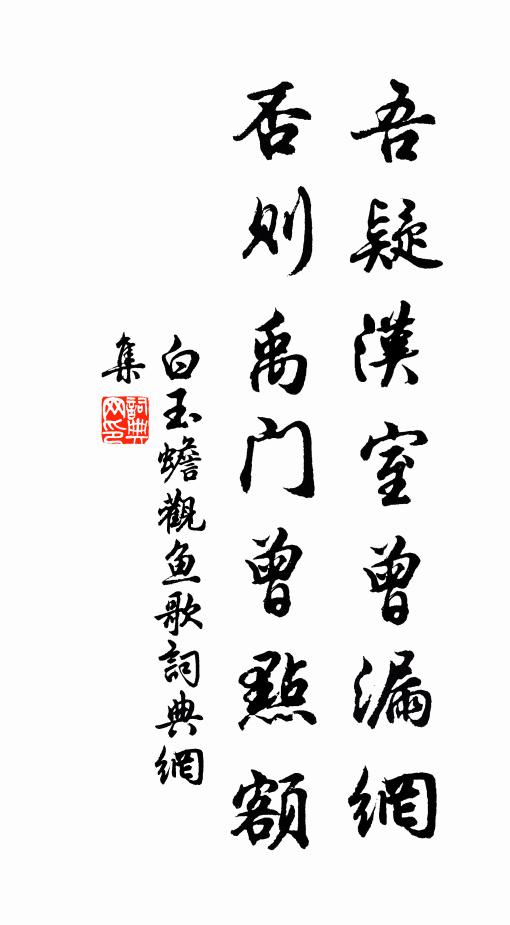 吾疑漢室曾漏網
否則禹門曾點額
白玉蟾觀魚歌詞典網
集
詞典
网印